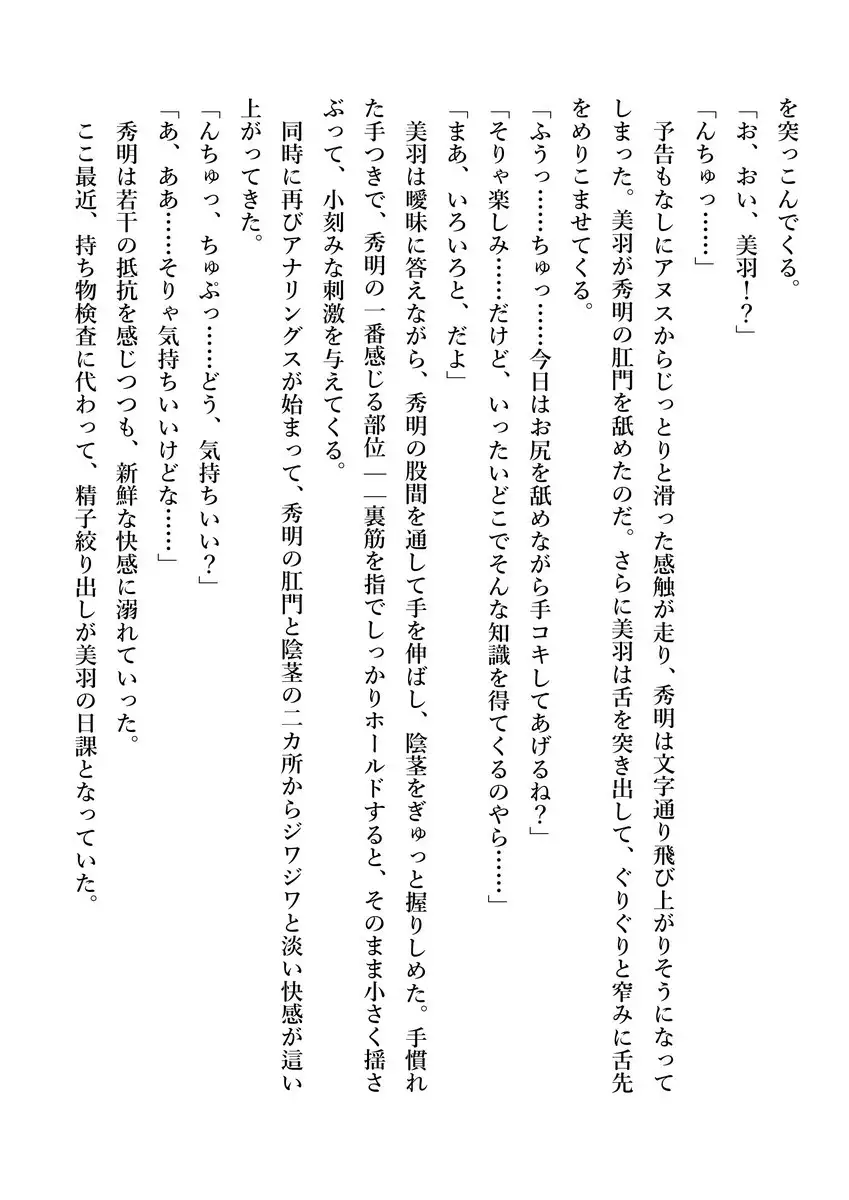 を突っこんでくる。
「お、おい、美羽!?」
「んちゅっ……」
予告もなしにアヌスからじっとりと滑った感触が走り、秀明は文字通り飛び上がりそうになって
しまった。美羽が秀明の肛門を舐めたのだ。さらに美羽は舌を突き出して、ぐりぐりと窄みに舌先
をめりこませてくる。
「ふうっ……ちゅっ……今日はお尻を舐めながら手コキしてあげるね?」
「そりゃ楽しみ……だけど、いったいどこでそんな知識を得てくるのやら……」
「まあ、いろいろと、だよ」
美羽は曖昧に答えながら、秀明の股間を通して手を伸ばし、陰茎をぎゅっと握りしめた。手慣れ
た手つきで、秀明の一番感じる部位――裏筋を指でしっかりホールドすると、そのまま小さく揺さ
ぶって、小刻みな刺激を与えてくる。
同時に再びアナリングスが始まって、秀明の肛門と陰茎の二カ所からジワジワと淡い快感が這い
上がってきた。
「んちゅっ、ちゅぷっ……どう、気持ちいい?」
「あ、ああ……そりゃ気持ちいいけどな……」
秀明は若干の抵抗を感じつつも、新鮮な快感に溺れていった。
ここ最近、持ち物検査に代わって、精子絞り出しが美羽の日課となっていた。